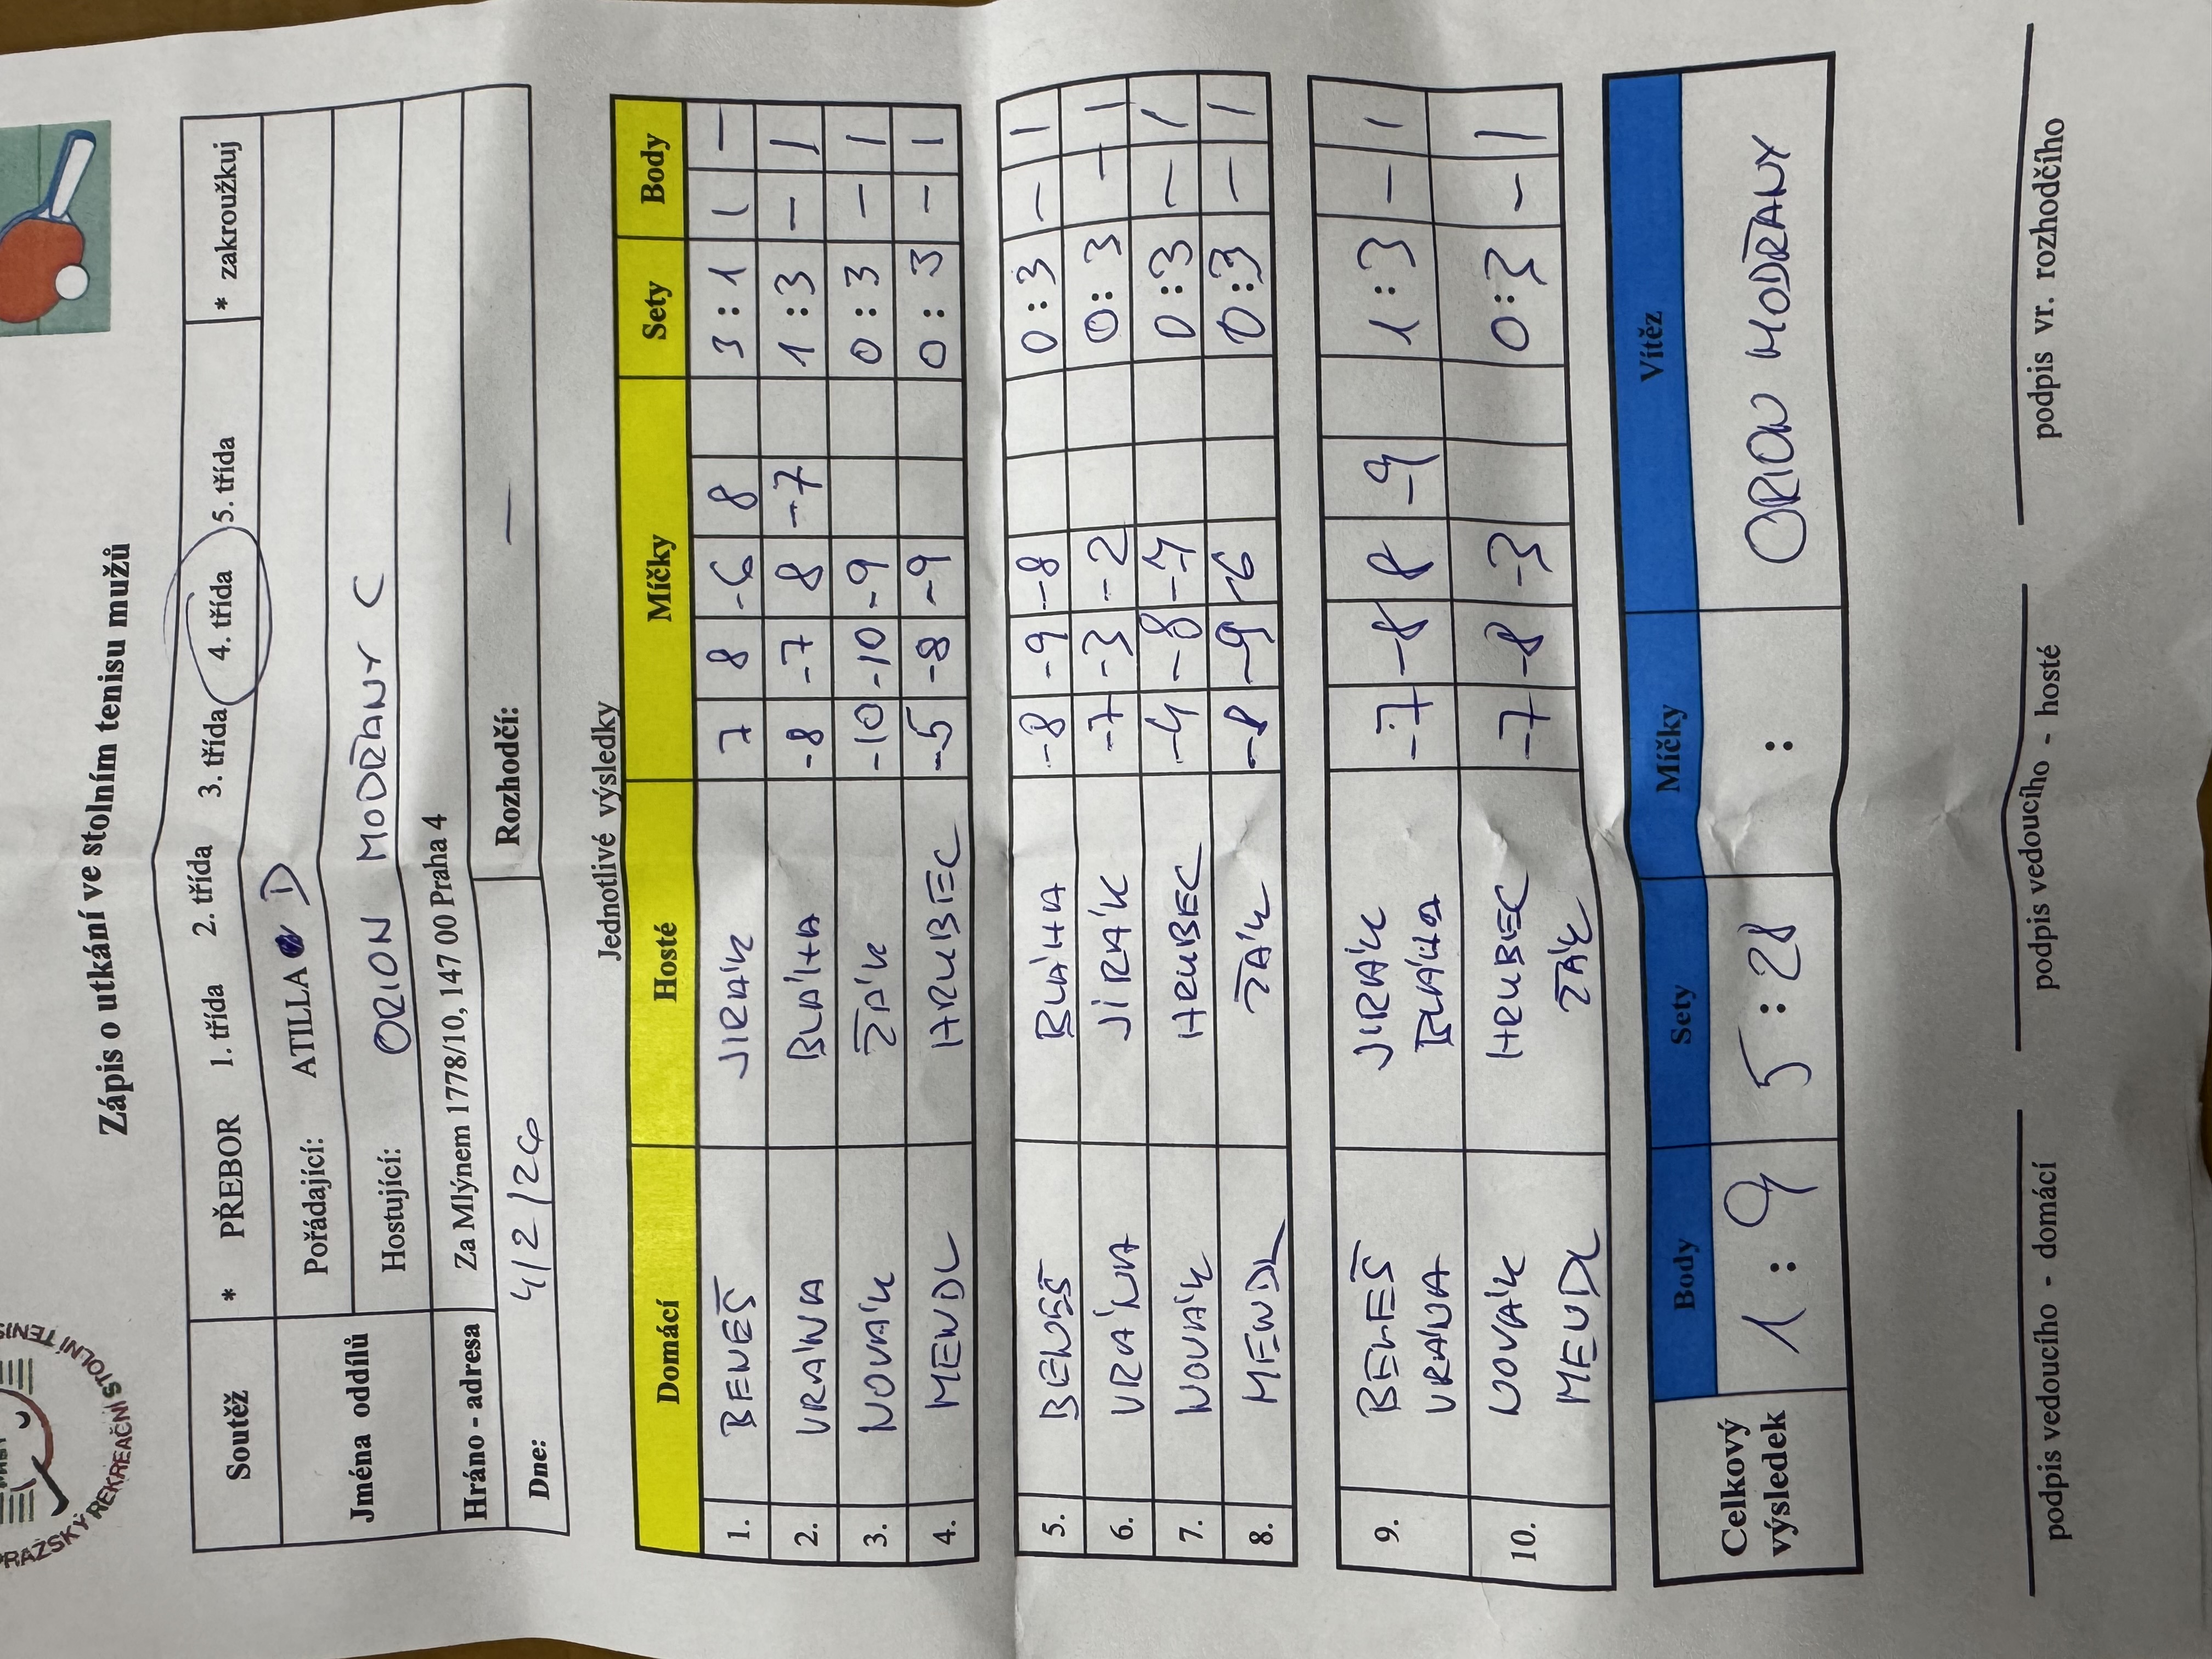 PRAŽSKÝ REKREAČNÍ STOLNÍ TENIS
Zápis o utkání ve stolním tenisu mužů
Soutěž * PŘEBOR 1. třída 2. třída 3. třída 4. třída 5. třída * zakroužkuj
Jména oddílů Pořádající: ATILLA D
Hostující: ORION MODŘANY C
Hráno - adresa Za Mlýnem 1778/10, 147 00 Praha 4
Dne: 4/2/26 Rozhodčí: —
Jednotlivé výsledky
Domácí Hosté Míčky Sety Body
1. BENEŠ JIRÁK 7 8 -6 8 3:1 1 —
2. VRÁNA BLÁHA -8 -7 8 -7 1:3 — 1
3. NOVÁK ŽÁK -10 -10 -9 0:3 — 1
4. MENDL HRUBEC -5 -8 -9 0:3 — 1
5. BENEŠ BLÁHA -8 -9 -8 0:3 — 1
6. VRÁNA JIRÁK -7 -3 -2 0:3 — 1
7. NOVÁK HRUBEC -4 -8 -7 0:3 — 1
8. MENDL ŽÁK -8 -9 -6 0:3 — 1
9. BENEŠ JIRÁK -7 -8 8 -9 1:3 — 1
VRÁNA BLÁHA
10. NOVÁK HRUBEC -7 -8 -3 0:3 — 1
MENDL ŽÁK
Celkový výsledek Body Sety Míčky Vítěz
1:9 5:28 : ORION MODŘANY
podpis vedoucího - domácí podpis vedoucího - hosté podpis vr. rozhodčího